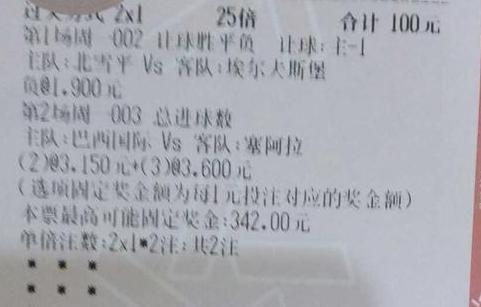 过关方式 2x1 25倍 合计 100元
第1场周 002 让球胜平负 让球:主-1
主队:北雪平 Vs 客队:埃尔夫斯堡
负@1.900元
第2场周 003 总进球数
主队:巴西国际 Vs 客队:塞阿拉
(2)@3.150元+(3)@3.600元
(选项固定奖金额为每1元投注对应的奖金额)
本票最高可能固定奖金:342.00元
单倍注数:2x1*2注;共2注
* * *
* * *